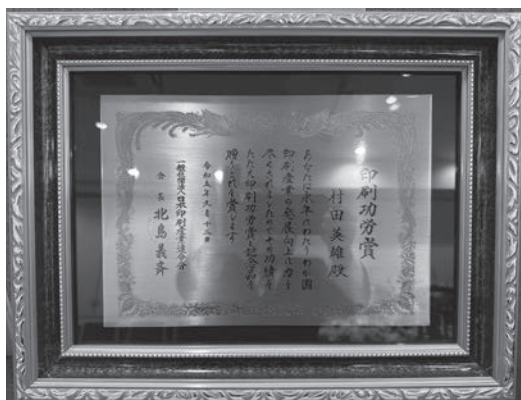 印刷功労賞
村田英雄殿
あなたは永年にわたりわが国
印刷産業の発展向上に力を
尽くされましたのでその功績を
たたえ印刷功労賞と記念品を
贈りこれを賞します
令和五年九月十三日
一般社団法人日本印刷産業連合会
会長 北島義斉